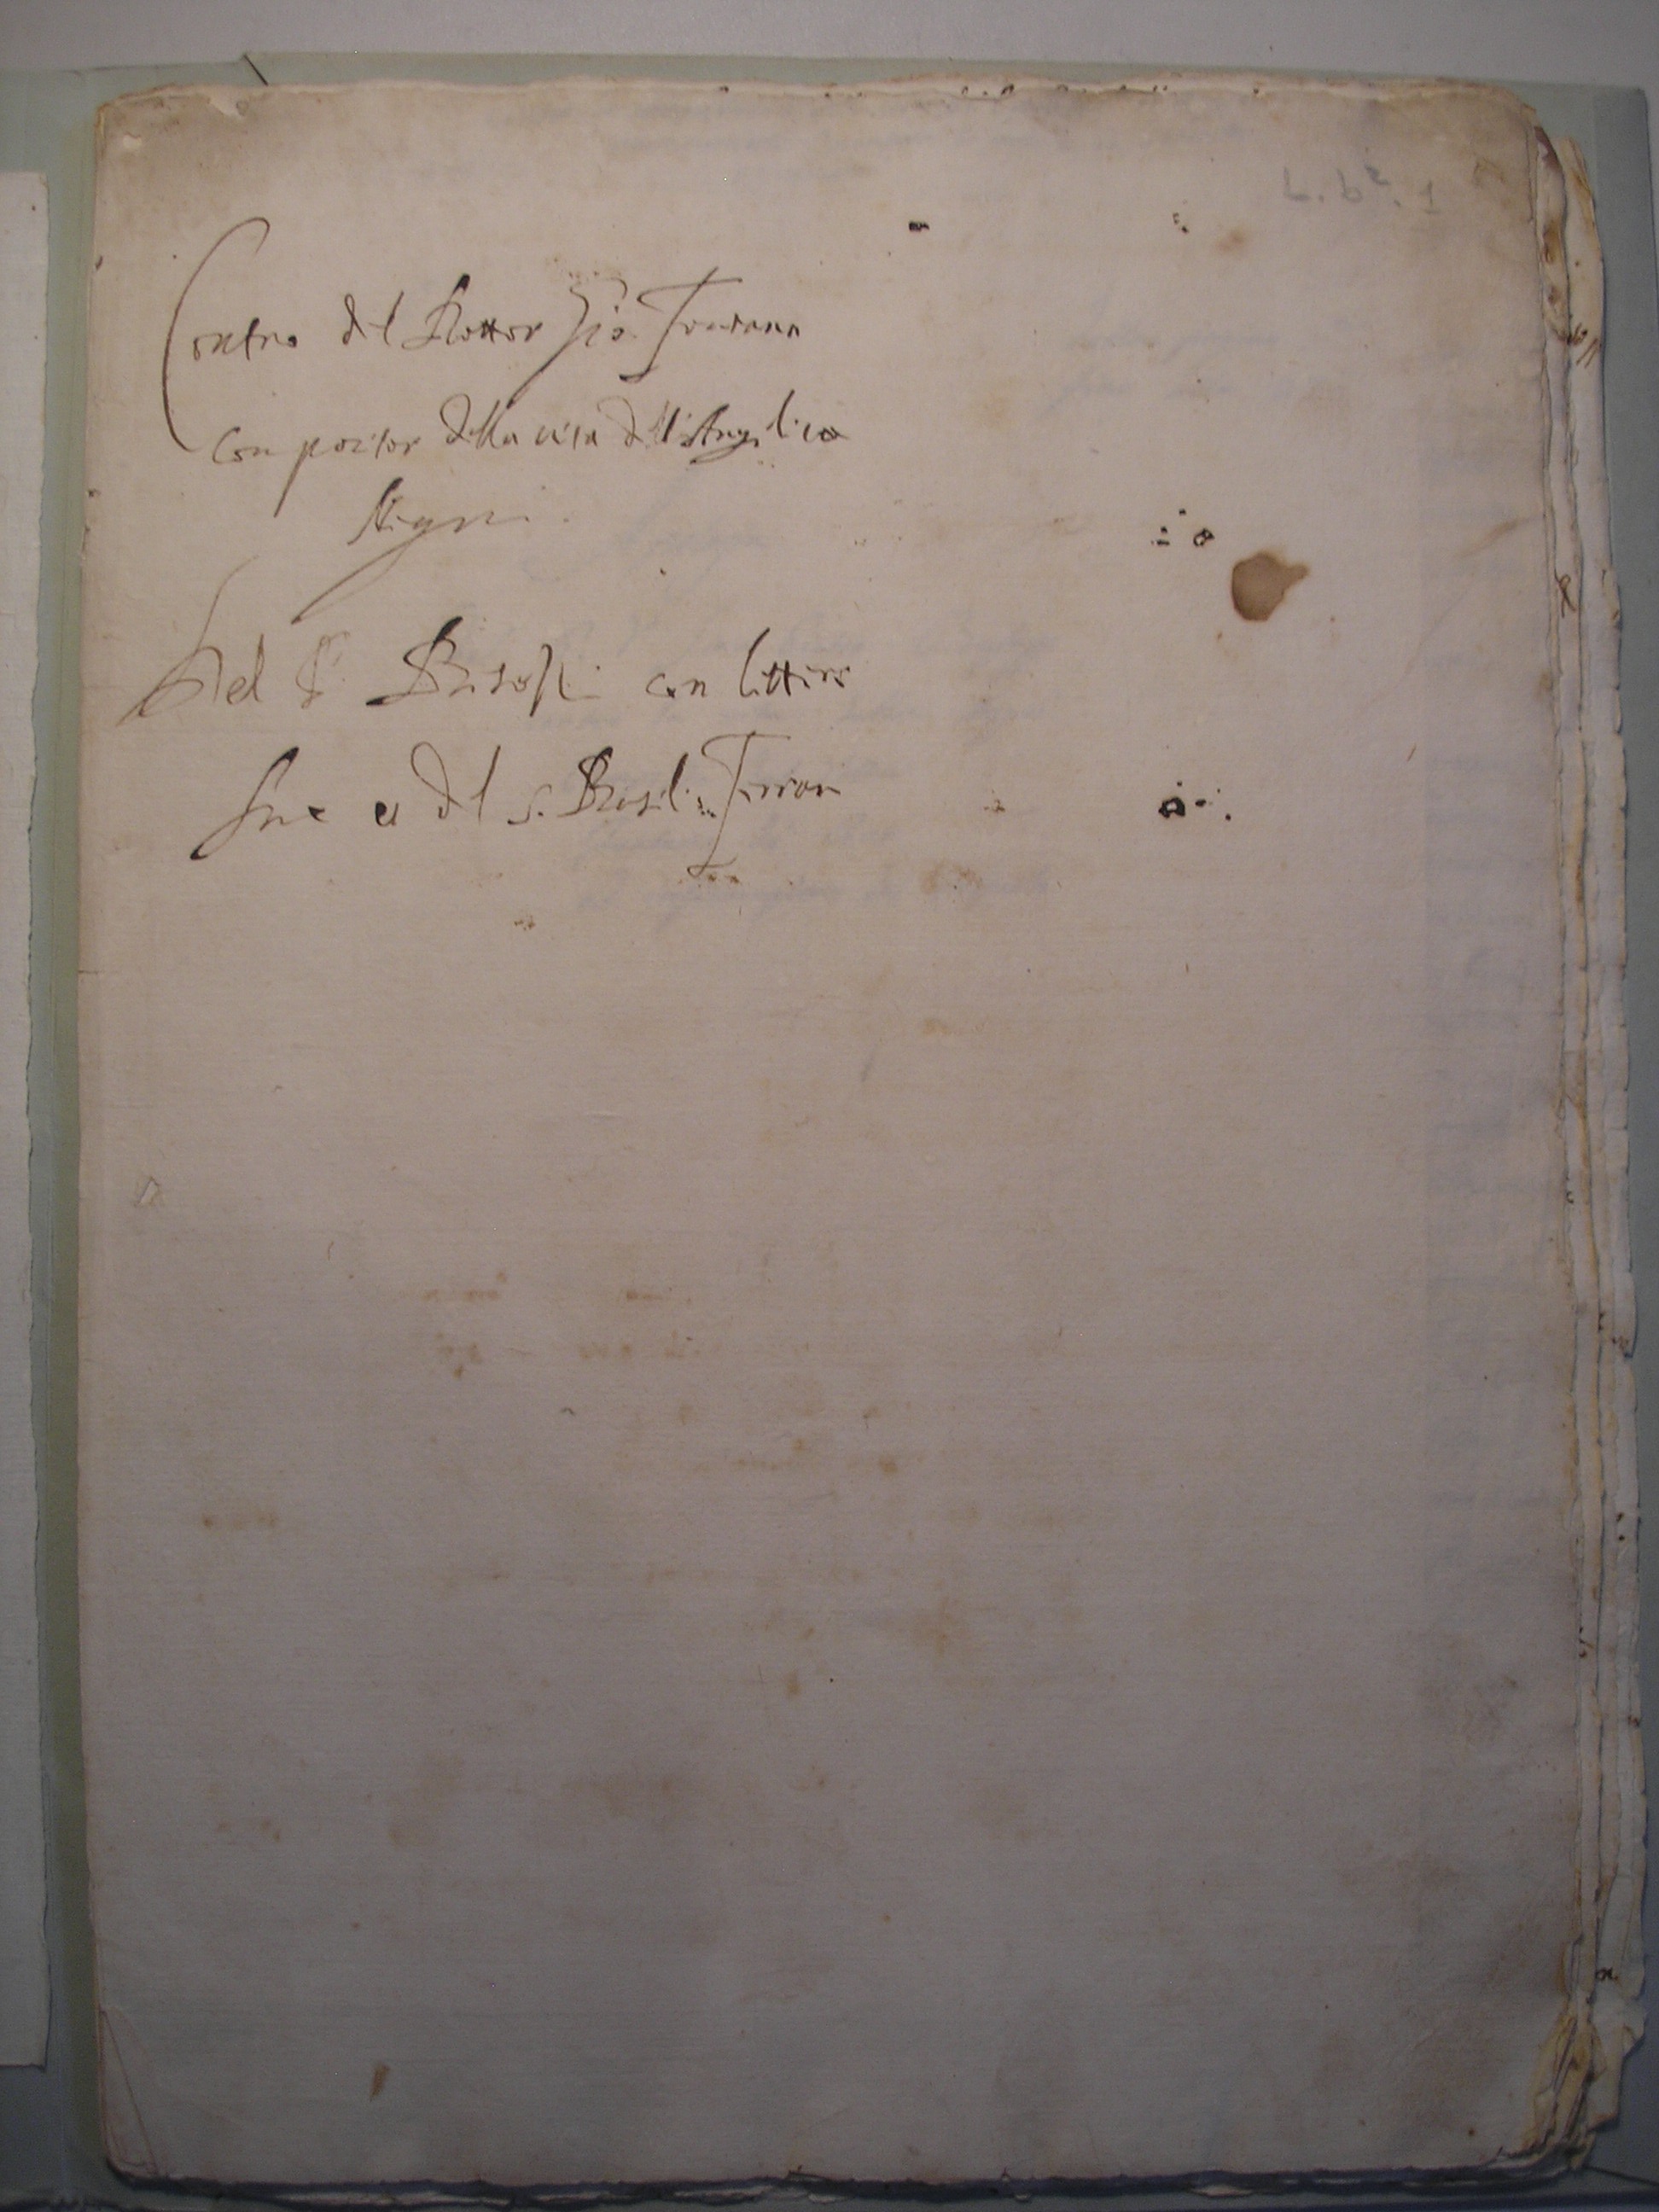 L. b. 2. 1
Contro del Dottor Gio. Fontana
compositor della vita dell'Angelica
Negri.
Del P. Besozzi con littere
sue et del S. Basilio Ferrari